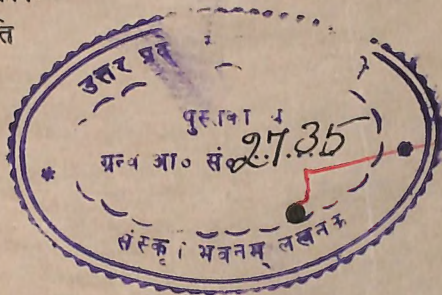 ति
उत्तर प्र
पुस्तका
ग्रन्थ आ० सं० 2735
संस्कृ भवनम् लखनऊ